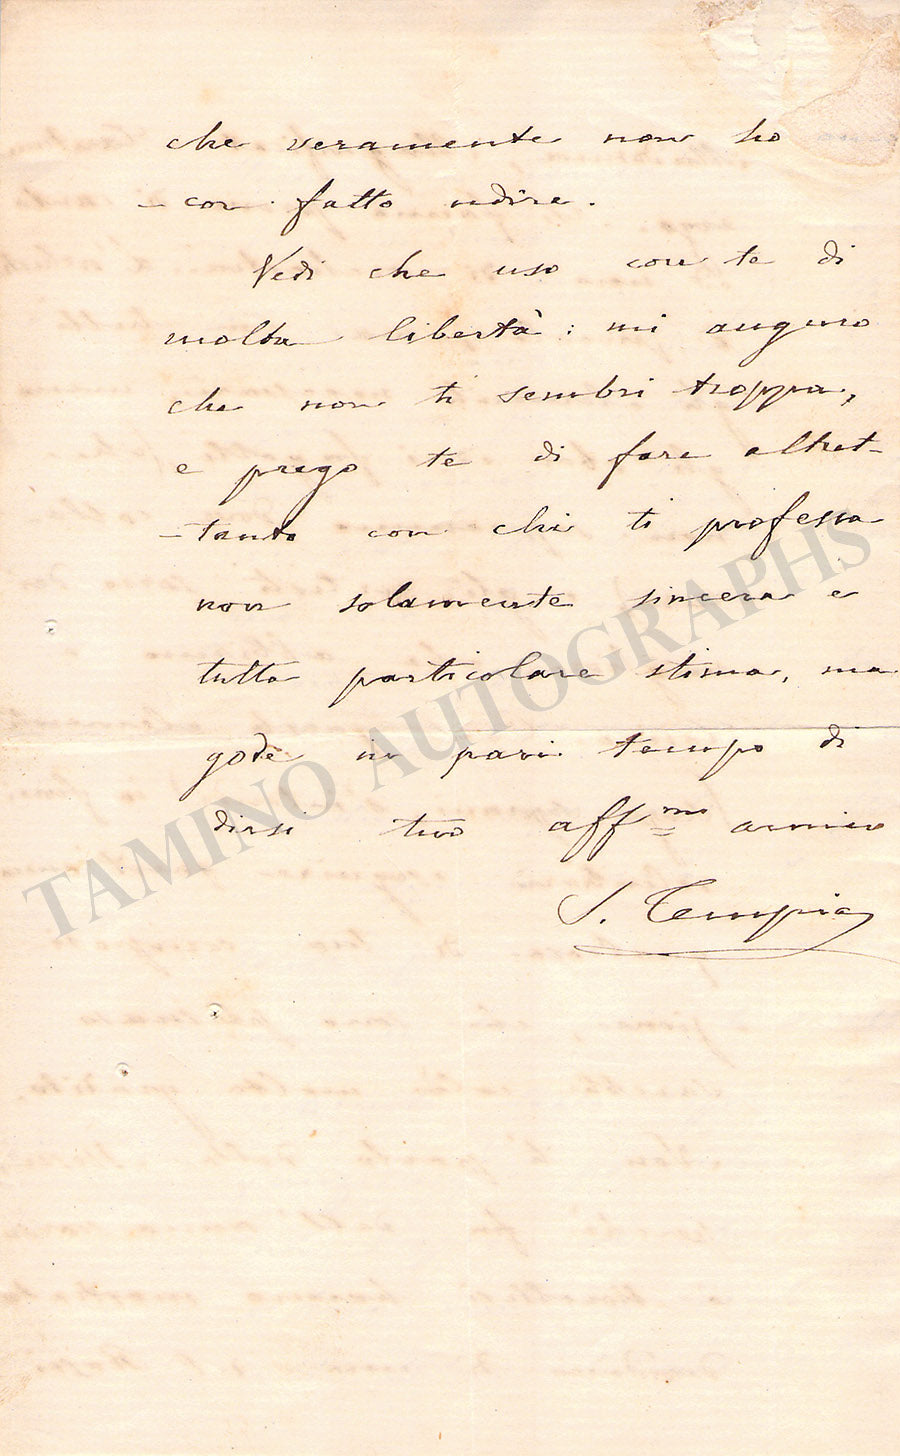 che veramente non ho
-cor fatto udire.
Vedi che uso con te di
molta libertà: mi auguro
che non ti sembri troppa,
e prego te di fare altret-
-tanto con chi ti professa
non solamente sincera e
tutta particolare stima, ma
gode in pari tempo di
dirsi tuo affmo amico
S. Tempia
TAMINO AUTOGRAPHS